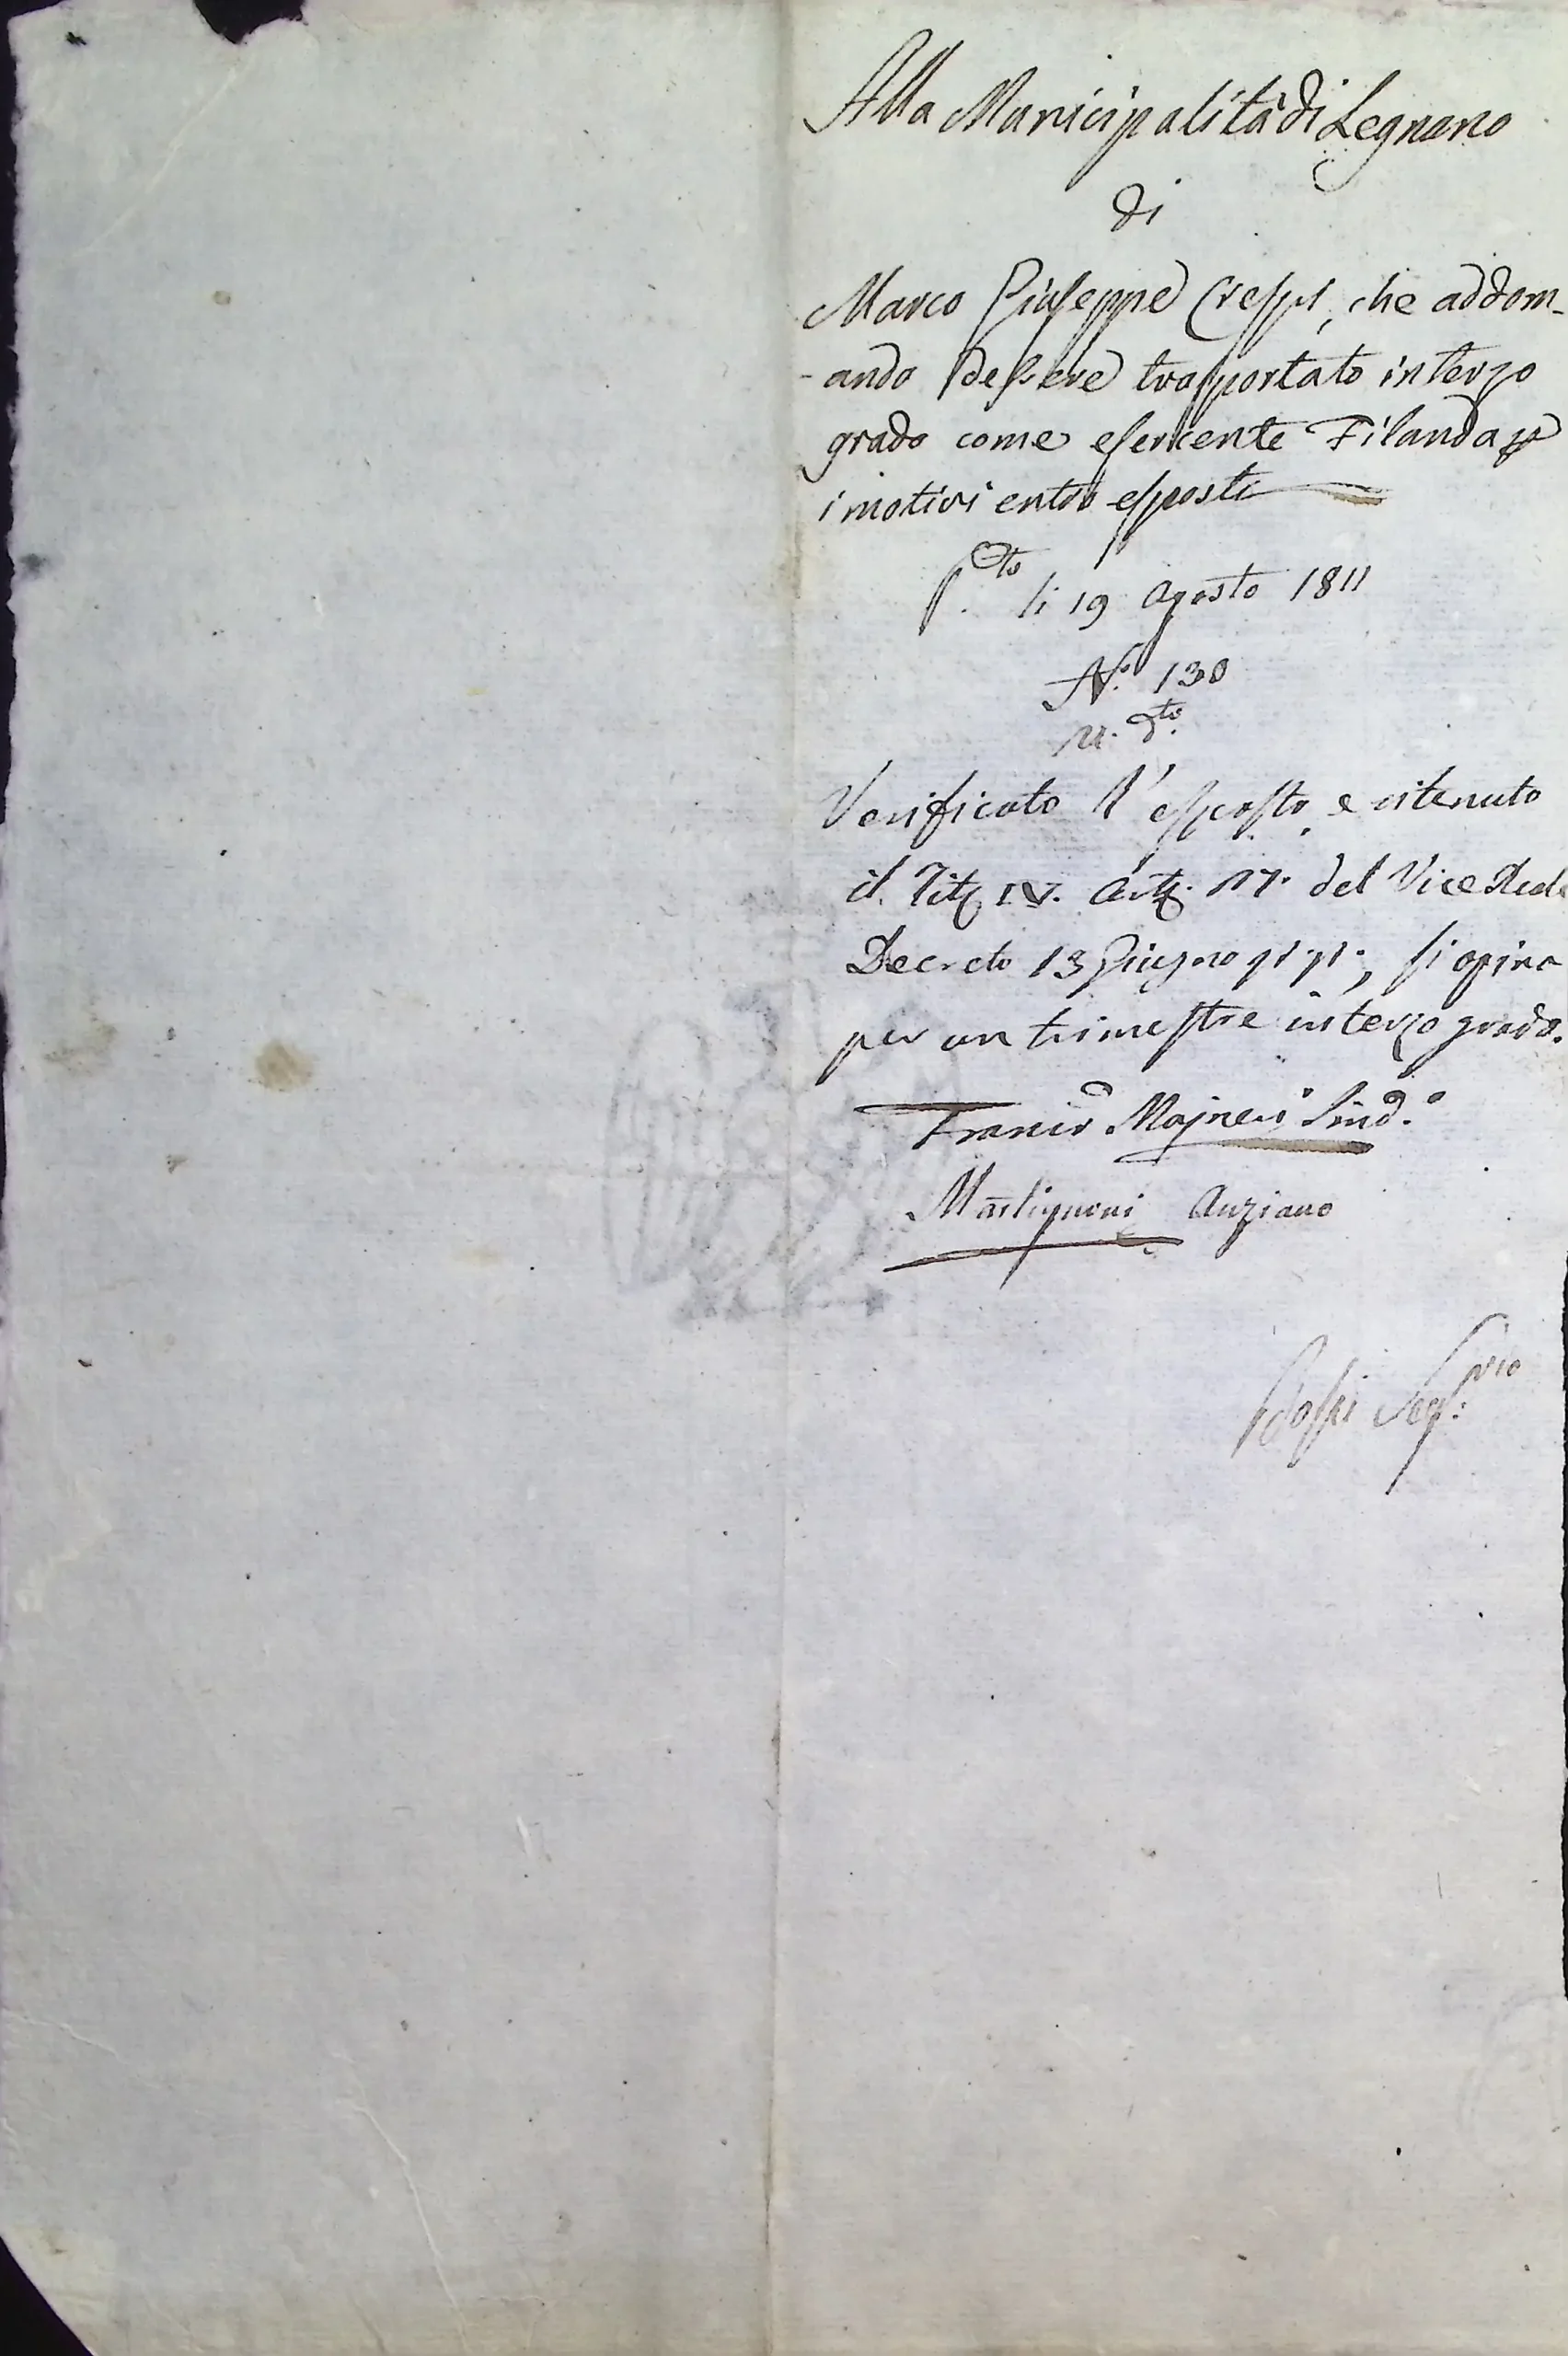 Alla Municipalità di Legnano
di
Marco Giuseppe Crespi, che addom-
-anda d'essere trasportato in terzo
grado come esercente Filanda p
i motivi entro esposti
P.to li 19 Agosto 1811
N.° 130
Verificato l'esposto, e ritenuto
il Tit. IV. Art. 17. del Vice Reale
Decreto 13 Giugno p.p., si opina
per un trimestre in terzo grado.
Franco Majneri Sind.o
Martignoni Anziano
Seg.rio